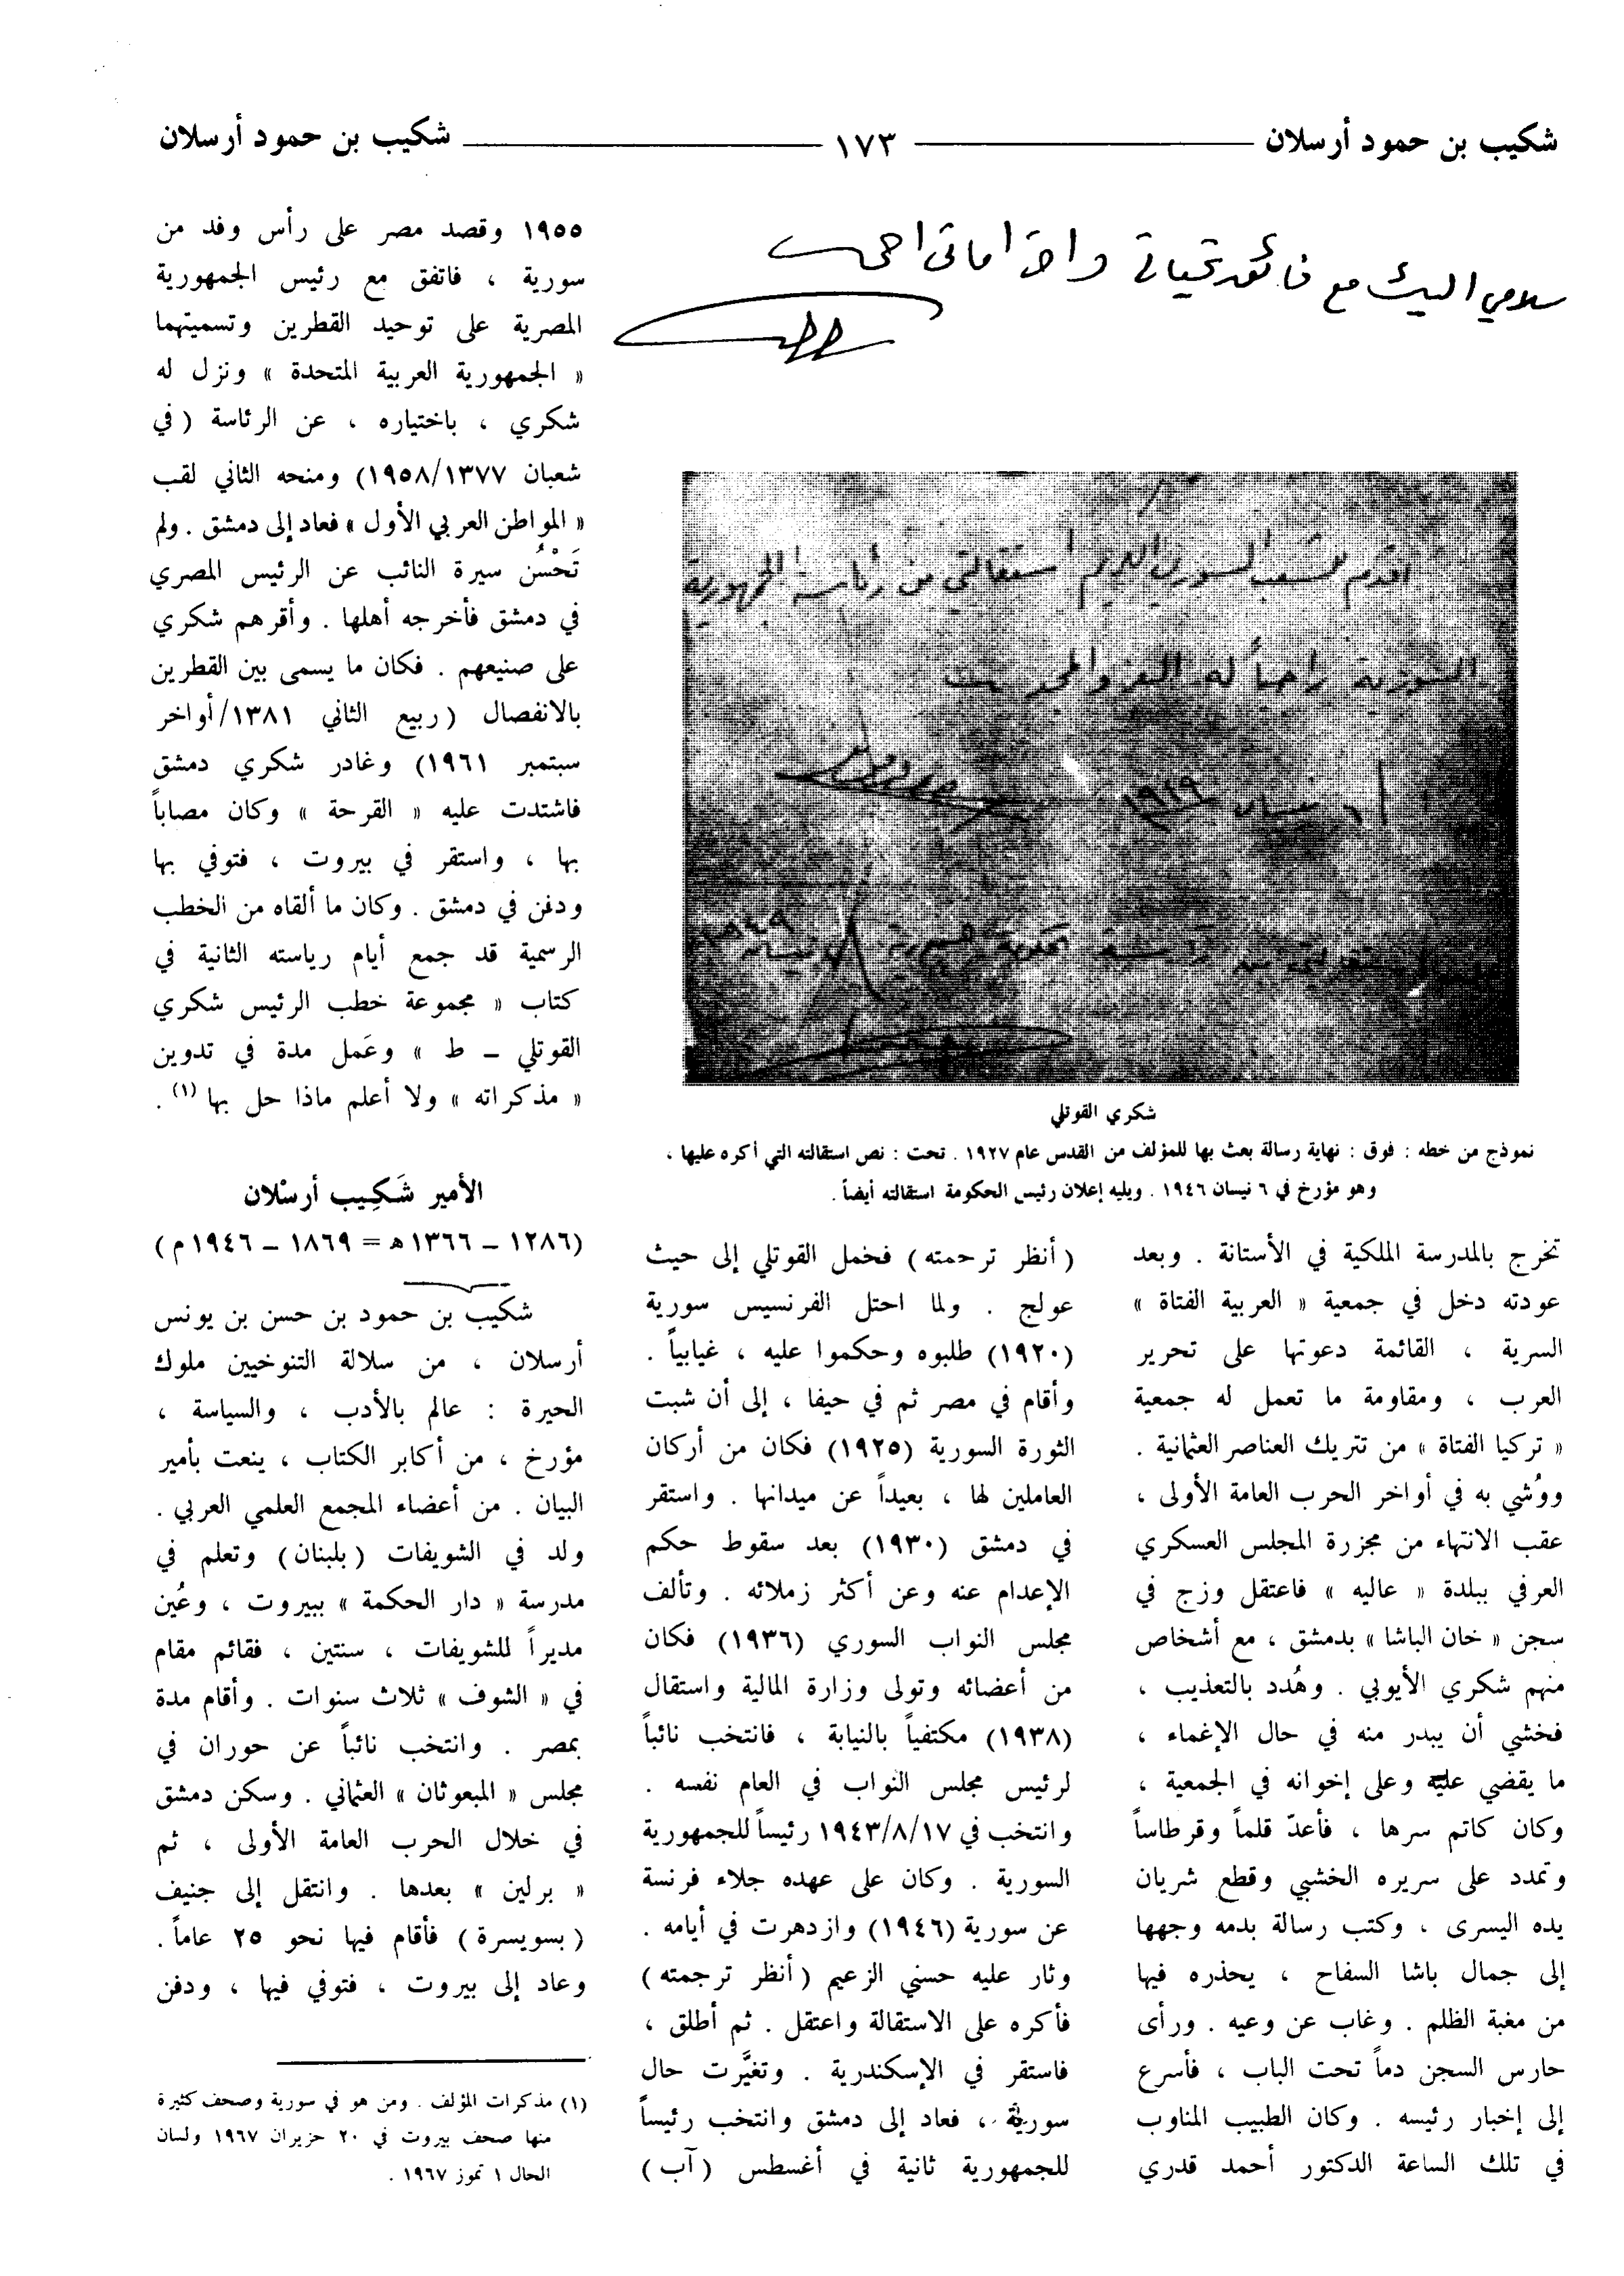 شكيب بن حمود أرسلان ١٧٣ شكيب بن حمود أرسلان
سلامي اليك مع فائق تحياتي واحتراماتي اخي
اقدم للشعب السوري الكريم استقالتي من رئاسة الجمهورية
السورية راجياً له العز والمجد
٦ نيسان ١٩٤٩
شكري القوتلي
نموذج من خطه : فوق : نهاية رسالة بعث بها للمؤلف من القدس عام ١٩٢٧ . تحت : نص استقالته التي أكره عليها ،
وهو مؤرخ في ٦ نيسان ١٩٤٦ . ويليه إعلان رئيس الحكومة استقالته أيضاً .
تخرج بالمدرسة الملكية في الأستانة . وبعد
عودته دخل في جمعية « العربية الفتاة »
السرية ، القائمة دعوتها على تحرير
العرب ، ومقاومة ما تعمل له جمعية
« تركيا الفتاة » من تتريك العناصر العثمانية .
ووُشي به في أواخر الحرب العامة الأولى ،
عقب الانتهاء من مجزرة المجلس العسكري
العرفي ببلدة « عاليه » فاعتقل وزج في
سجن « خان الباشا » بدمشق ، مع أشخاص
منهم شكري الأيوبي . وهُدد بالتعذيب ،
فخشي أن يبدر منه في حال الإغماء ،
ما يقضي عليه وعلى إخوانه في الجمعية ،
وكان كاتم سرها ، فأعدّ قلماً وقرطاساً
وتمدد على سريره الخشبي وقطع شريان
يده اليسرى ، وكتب رسالة بدمه وجهها
إلى جمال باشا السفاح ، يحذره فيها
من مغبة الظلم . وغاب عن وعيه . ورأى
حارس السجن دماً تحت الباب ، فأسرع
إلى إخبار رئيسه . وكان الطبيب المناوب
في تلك الساعة الدكتور أحمد قدري
(أنظر ترجمته) فحمل القوتلي إلى حيث
عولج . ولما احتل الفرنسيس سورية
(١٩٢٠) طلبوه وحكموا عليه ، غيابياً .
وأقام في مصر ثم في حيفا ، إلى أن شبت
الثورة السورية (١٩٢٥) فكان من أركان
العاملين لها ، بعيداً عن ميدانها . واستقر
في دمشق (١٩٣٠) بعد سقوط حكم
الإعدام عنه وعن أكثر زملائه . وتألف
مجلس النواب السوري (١٩٣٦) فكان
من أعضائه وتولى وزارة المالية واستقال
(١٩٣٨) مكتفياً بالنيابة ، فانتخب نائباً
لرئيس مجلس النواب في العام نفسه .
وانتخب في ١٩٤٣/٨/١٧ رئيساً للجمهورية
السورية . وكان على عهده جلاء فرنسة
عن سورية (١٩٤٦) وازدهرت في أيامه .
وثار عليه حسني الزعيم (أنظر ترجمته)
فأكره على الاستقالة واعتقل . ثم أطلق ،
فاستقر في الإسكندرية . وتغيَّرت حال
سورية ، فعاد إلى دمشق وانتخب رئيساً
للجمهورية ثانية في أغسطس (آب)
١٩٥٥ وقصد مصر على رأس وفد من
سورية ، فاتفق مع رئيس الجمهورية
المصرية على توحيد القطرين وتسميتهما
« الجمهورية العربية المتحدة » ونزل له
شكري ، باختياره ، عن الرئاسة (في
شعبان ١٩٥٨/١٣٧٧) ومنحه الثاني لقب
« المواطن العربي الأول » فعاد إلى دمشق . ولم
تَحْسُن سيرة النائب عن الرئيس المصري
في دمشق فأخرجه أهلها . وأقرهم شكري
على صنيعهم . فكان ما يسمى بين القطرين
بالانفصال (ربيع الثاني ١٣٨١/أواخر
سبتمبر ١٩٦١) وغادر شكري دمشق
فاشتدت عليه « القرحة » وكان مصاباً
بها ، واستقر في بيروت ، فتوفي بها
ودفن في دمشق . وكان ما ألقاه من الخطب
الرسمية قد جمع أيام رياسته الثانية في
كتاب « مجموعة خطب الرئيس شكري
القوتلي – ط » وعَمل مدة في تدوين
« مذكراته » ولا أعلم ماذا حل بها (١) .
الأمير شَكِيب أرسْلان
(١٢٨٦ – ١٣٦٦ هـ = ١٨٦٩ – ١٩٤٦ م)
شكيب بن حمود بن حسن بن يونس
أرسلان ، من سلالة التنوخيين ملوك
الحيرة : عالم بالأدب ، والسياسة ،
مؤرخ ، من أكابر الكتاب ، ينعت بأمير
البيان . من أعضاء المجمع العلمي العربي .
ولد في الشويفات (بلبنان) وتعلم في
مدرسة « دار الحكمة » ببيروت ، وعُين
مديراً للشويفات ، سنتين ، فقائم مقام
في « الشوف » ثلاث سنوات . وأقام مدة
بمصر . وانتخب نائباً عن حوران في
مجلس « المبعوثان » العثماني . وسكن دمشق
في خلال الحرب العامة الأولى ، ثم
« برلين » بعدها . وانتقل إلى جنيف
(بسويسرة) فأقام فيها نحو ٢٥ عاماً .
وعاد إلى بيروت ، فتوفي فيها ، ودفن
(١) مذكرات المؤلف . ومن هو في سورية وصحف كثيرة
منها صحف بيروت في ٢٠ حزيران ١٩٦٧ ولسان
الحال ١ تموز ١٩٦٧ .